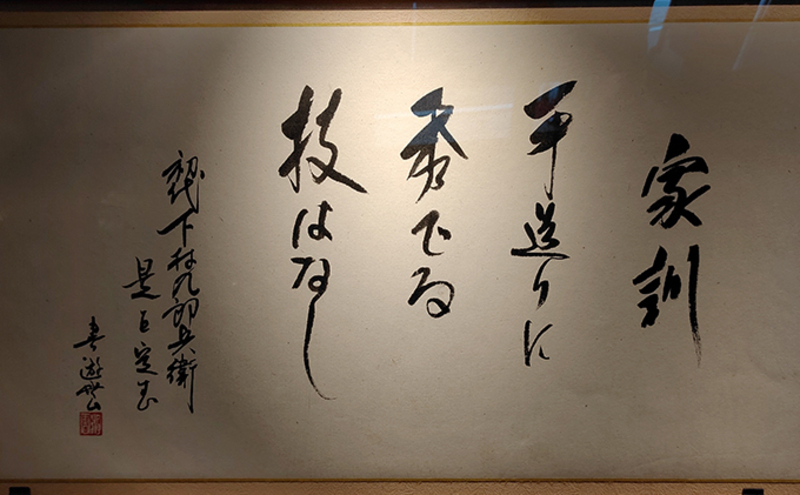 家訓
平送りに
秀でる
技はなし
下村九郎兵衛
是を定む
書 遊